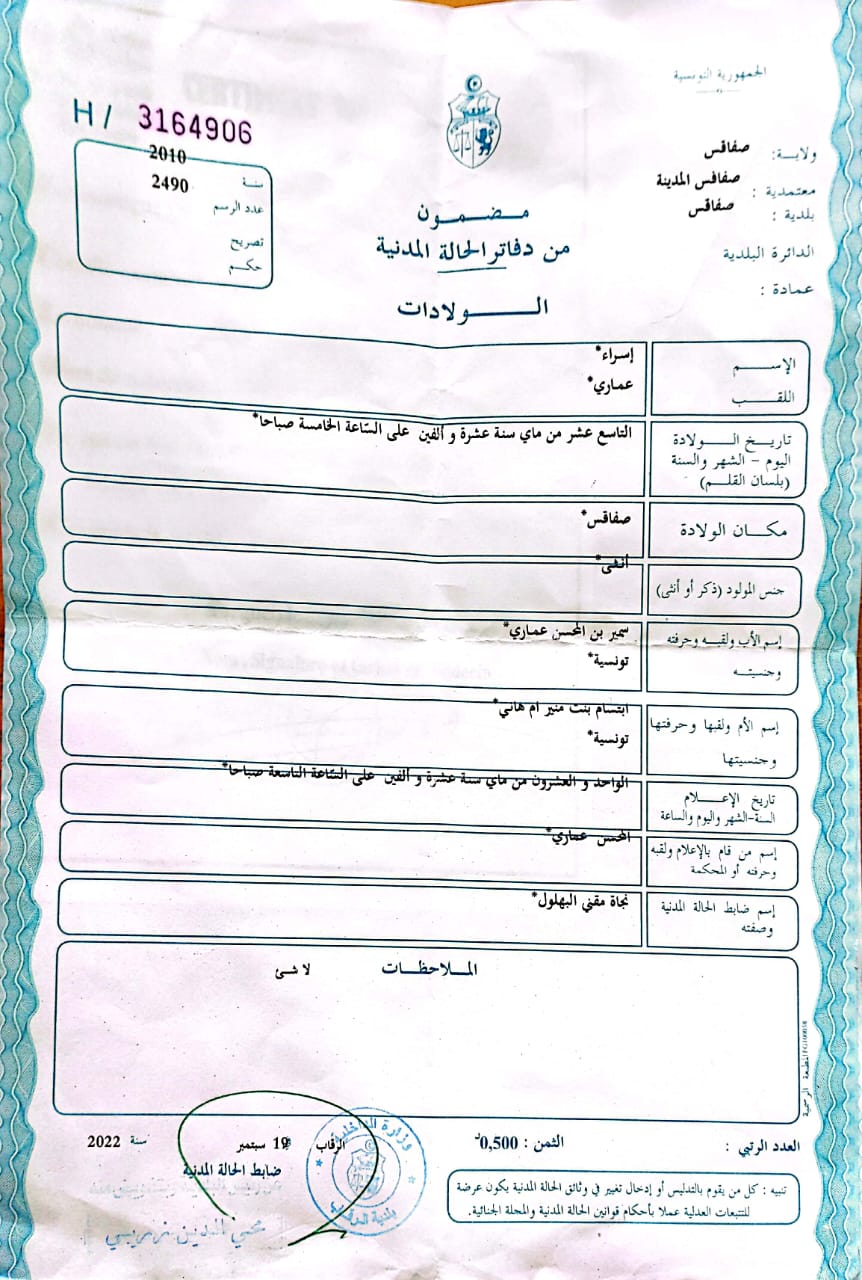 الجمهورية التونسية
H / 3164906
ولاية: صفاقس
معتمدية : صفاقس المدينة
بلدية : صفاقس
الدائرة البلدية
عمادة :
سنة 2010
عدد الرسم 2490
تصريح
حكم
مضمون
من دفاتر الحالة المدنية
الولادات
الإسم إسراء*
اللقب عماري*
تاريخ الولادة
اليوم - الشهر والسنة
(بلسان القلم)
التاسع عشر من ماي سنة عشرة و ألفين على السّاعة الخامسة صباحا*
مكان الولادة صفاقس*
جنس المولود (ذكر أو أنثى) أنثى*
إسم الأب ولقبه وحرفته سمير بن المحسن عماري*
وجنسيته تونسية*
إسم الأم ولقبها وحرفتها ابتسام بنت منير ام هاني*
وجنسيتها تونسية*
تاريخ الإعلام
السنة-الشهر واليوم والساعة
الواحد و العشرون من ماي سنة عشرة و ألفين على السّاعة التاسعة صباحا*
إسم من قام بالإعلام ولقبه
وحرفته أو المحكمة
المحسن عماري*
إسم ضابط الحالة المدنية
وصفته
نجاة مقني البهلول*
الملاحظات لا شئ
المطبعة الرسمية
العدد الرتبي :
الثمن : 0,500د
الرقاب 19 سبتمبر سنة 2022
ضابط الحالة المدنية
وزارة الداخلية
تنبيه : كل من يقوم بالتدليس أو إدخال تغيير في وثائق الحالة المدنية يكون عرضة
للتتبعات العدلية عملا بأحكام قوانين الحالة المدنية والمجلة الجنائية.